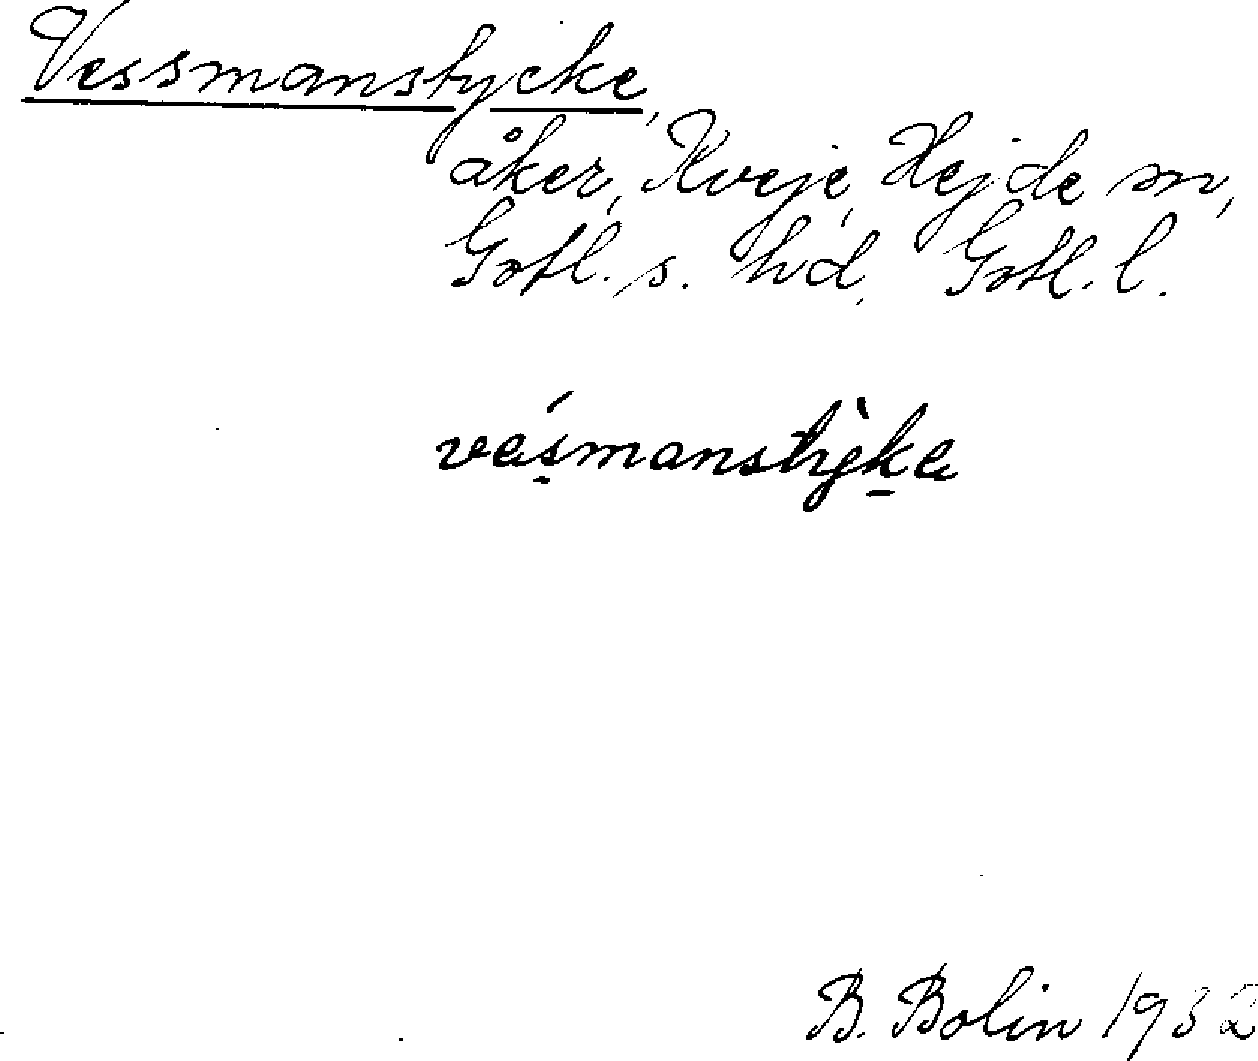 Vessmanstycke,
åker, Kveje, Hejde sn,
Gotl. s. hd. Gotl. l.
vásmanstỳka
B. Bolin 1932